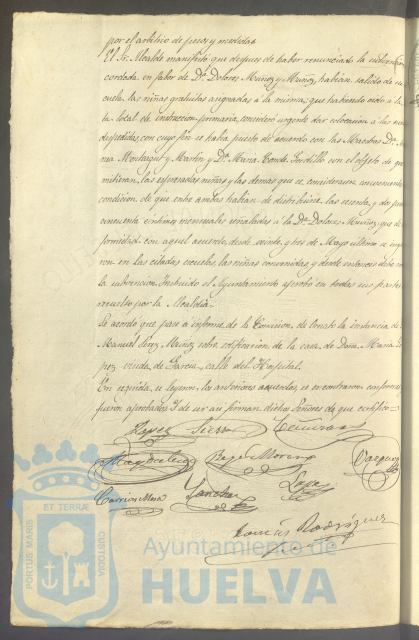 por el arbitrio de pesos y medidas
El Sr. Alcalde manifestó que despues de haber renunciado la subvencion
cordada en favor de Dª Dolores Muñoz y Muñoz, habian salido de su
cuela, las niñas gratuitas asignadas á la misma; que habiendo
la local de instruccion primaria, consideró urgente dar colocacion á las niñas
despedidas, con cuyo fin se habia puesto de acuerdo con las Maestras Dª
Montagut y Martin y Dª Maria Conde Gordillo con el objeto de que
mitieran las espresadas niñas y las demas que se considerasen conveniente
condicion de que entre ambas habian de distribuirse las sesenta y dos pesetas
cincuenta céntimos mensuales señalados á la Dª Dolores Muñoz, que de
formidad con aquel acuerdo, desde veinte y tres de Mayo último se
ron en las citadas escuelas las niñas convenidas, y desde entonces
la subvencion. Instruido el Ayuntamiento aprobó en todas sus partes
resuelto por la Alcaldia.
Se acordó que pase á informe de la Comision de Ornato la instancia de
Manuel Perez Muñoz sobre reedificacion de la casa de Doña Maria
pez viuda de Garcia, calle del Hospital.
En seguida se leyeron los anteriores acuerdos, se encontraron conformes
fueron aprobados. Y de ser asi firman dichos Señores de que certifico.
Lopez Sierra
Vazquez
Garrido Mora Sanchez Lopez
Tomás Rodriguez
PORTUS MARIS ET TERRÆ CUSTODIA
Ayuntamiento de
HUELVA